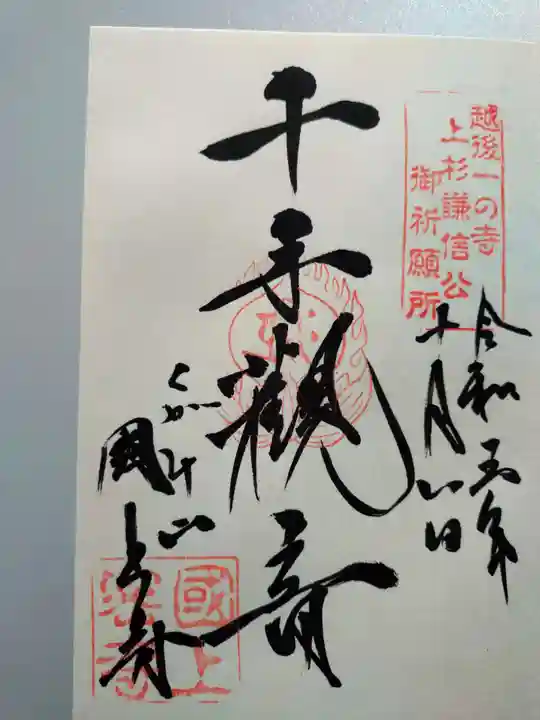 越後一の寺
上杉謙信公
御祈願所
令和五年
十月六日
千手観音
くがみ山
國上寺
國上